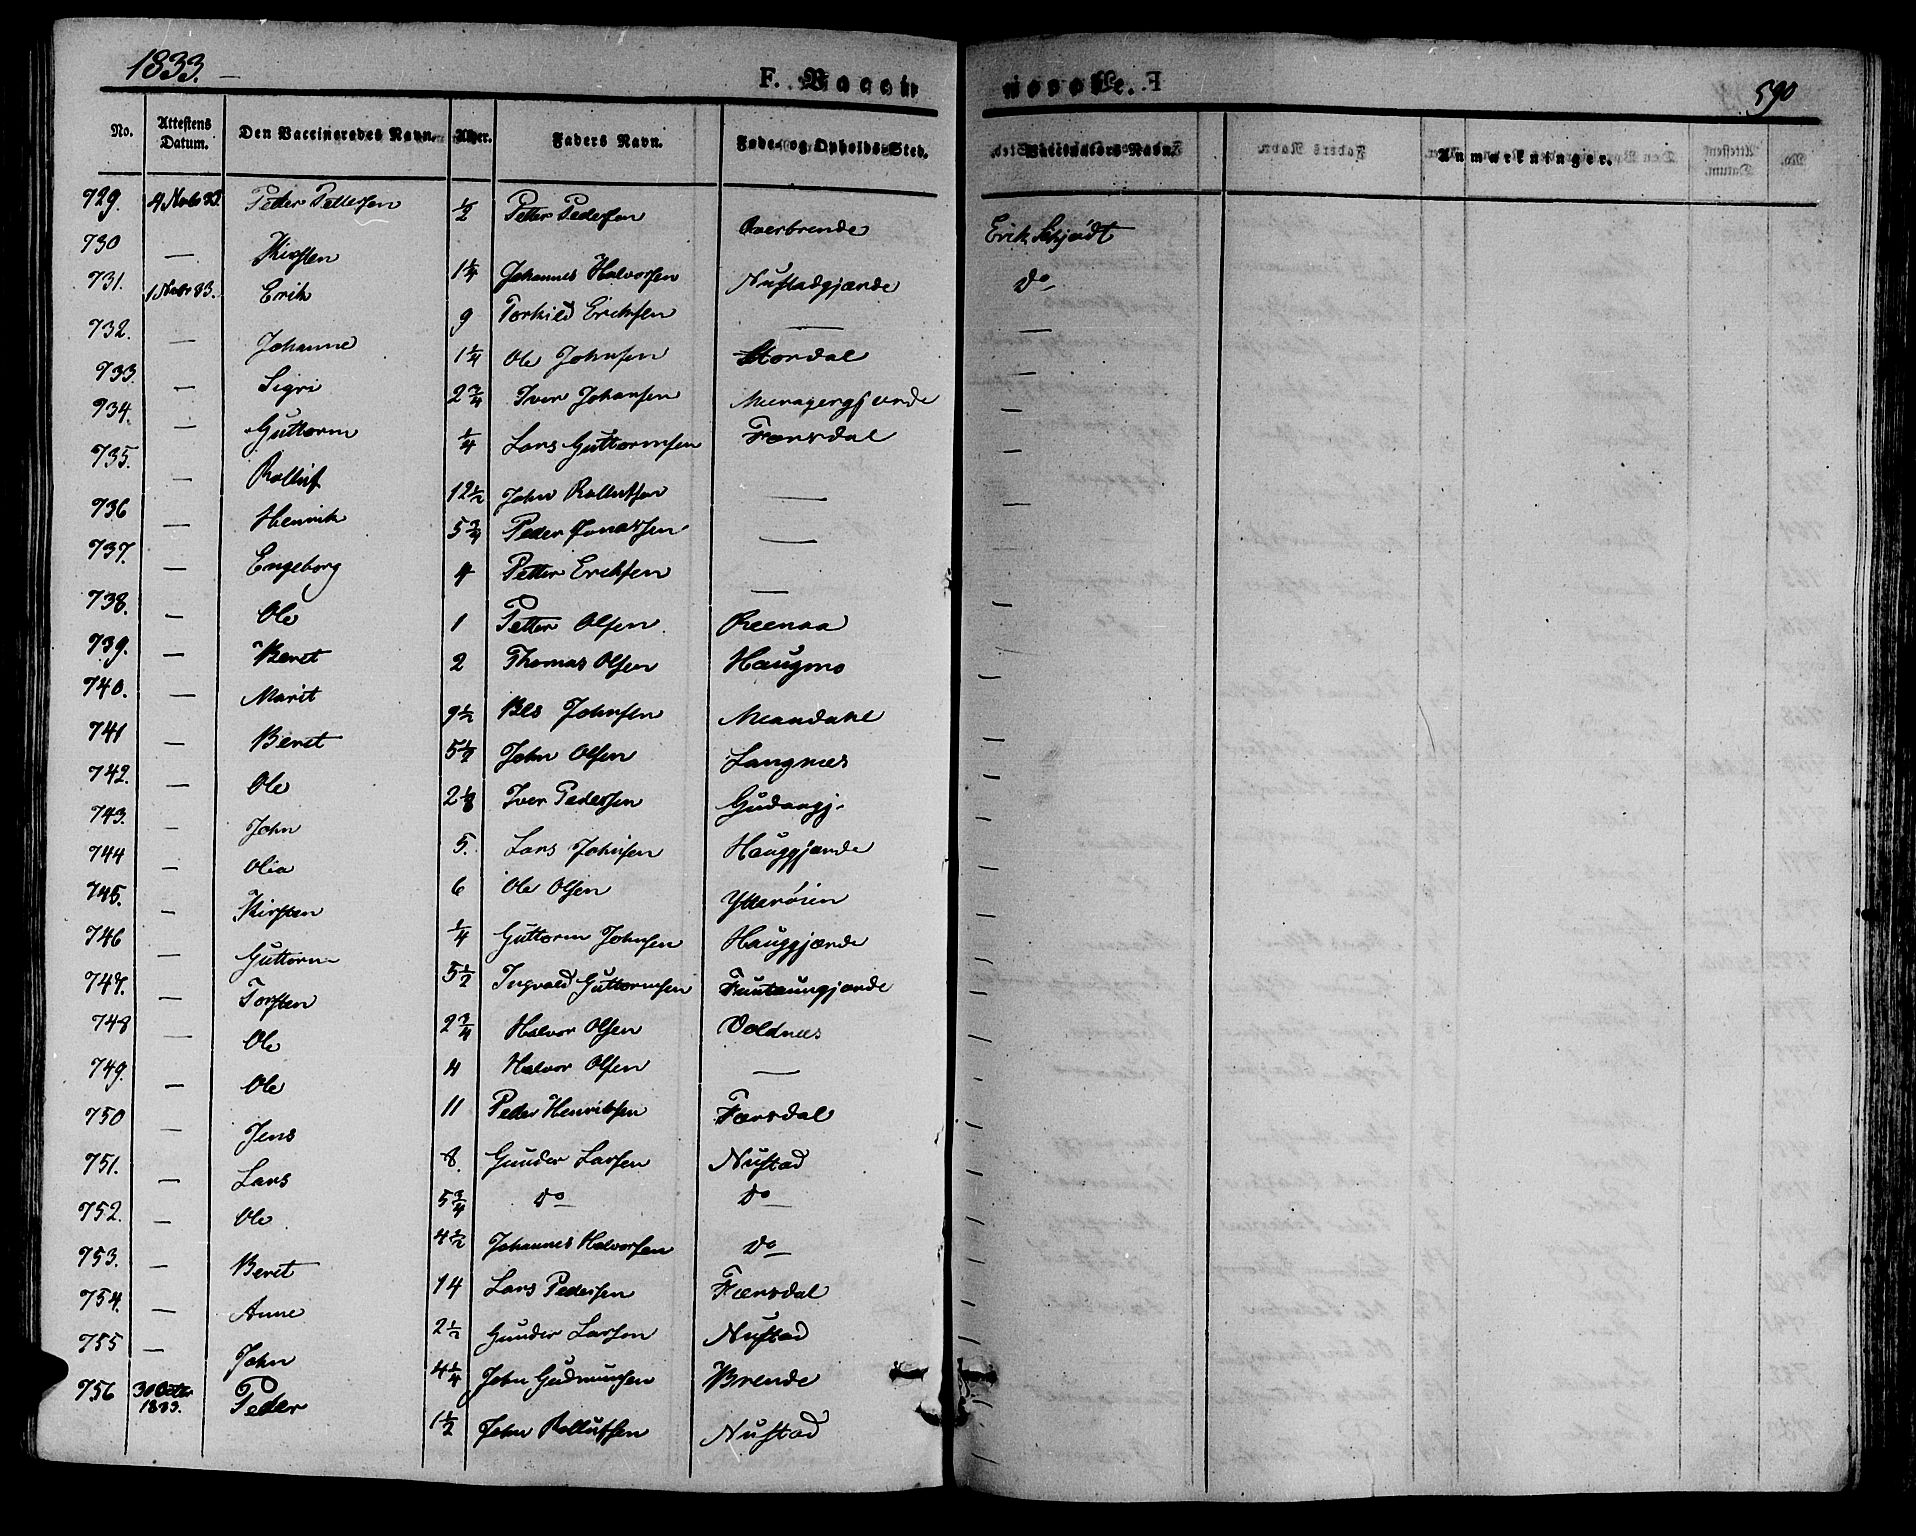 1833.
F. Vaccin
590
No. Attestens Datum. Den Vaccineredes Navn. Alder. Faders Navn. Føde- og Opholds-Sted. Vaccinators Navn. Anmærkninger.
729. 4 Novb 33. Peder Pettersen ½ Petter Pedersen Overbrende Erik Schjødt
730 — Kirsten 1¼ Johannes Halvorsen Nustadgjærde Do
731. 1 Nvbr 33. Erik 9 Torkild Eriksen — —
732. — Johanne 1¼ Ole Johnsen Stordal —
733. — Sigri 2¾ Iver Johansen —
734. — Guttorm ¼ Lars Guttormsen Færsdal —
735. — Rolluf 12½ John Rollufsen — —
736 — Henrik 5¾ Peder Jonassen — —
737. — Engeborg 4 Petter Eriksen — —
738. — Ole 1 Petter Olsen Reenaa —
739. — Beret 2 Thomas Olsen Haugmo —
740. — Marit 9½ Johnsen —
741 — Beret 5½ John Olsen Langnæs —
742. — Ole 2⅛ Iver Pedersen —
743. — John 5. Lars Johnsen Hauggjærde —
744 — Olia 6 Ole Olsen Ytterøien —
745. — Kirsten ¼ Guttorm Johnsen Hauggjærde —
746 — Guttorm 5½ Ingvald Guttormsen —
747. — Torsten 2¾ Halvor Olsen Voldnæs —
748 — Ole 4 Halvor Olsen — —
749. — Ole 11 Peder Henriksen Færsdal —
750 — Jens 8. Gunder Larsen Nustad —
751. — Lars 5¾ Do Do —
752. — Ole 4½ Johannes Halvorsen Do —
753. — Beret 14 Lars Pedersen Færsdal —
754. — Anne 2½ Gunder Larsen Nustad —
755 — John 4¼ John Gudmunsen Brende —
756 30 Octbr 1833. Peder 1½ John Rollufsen Nustad —